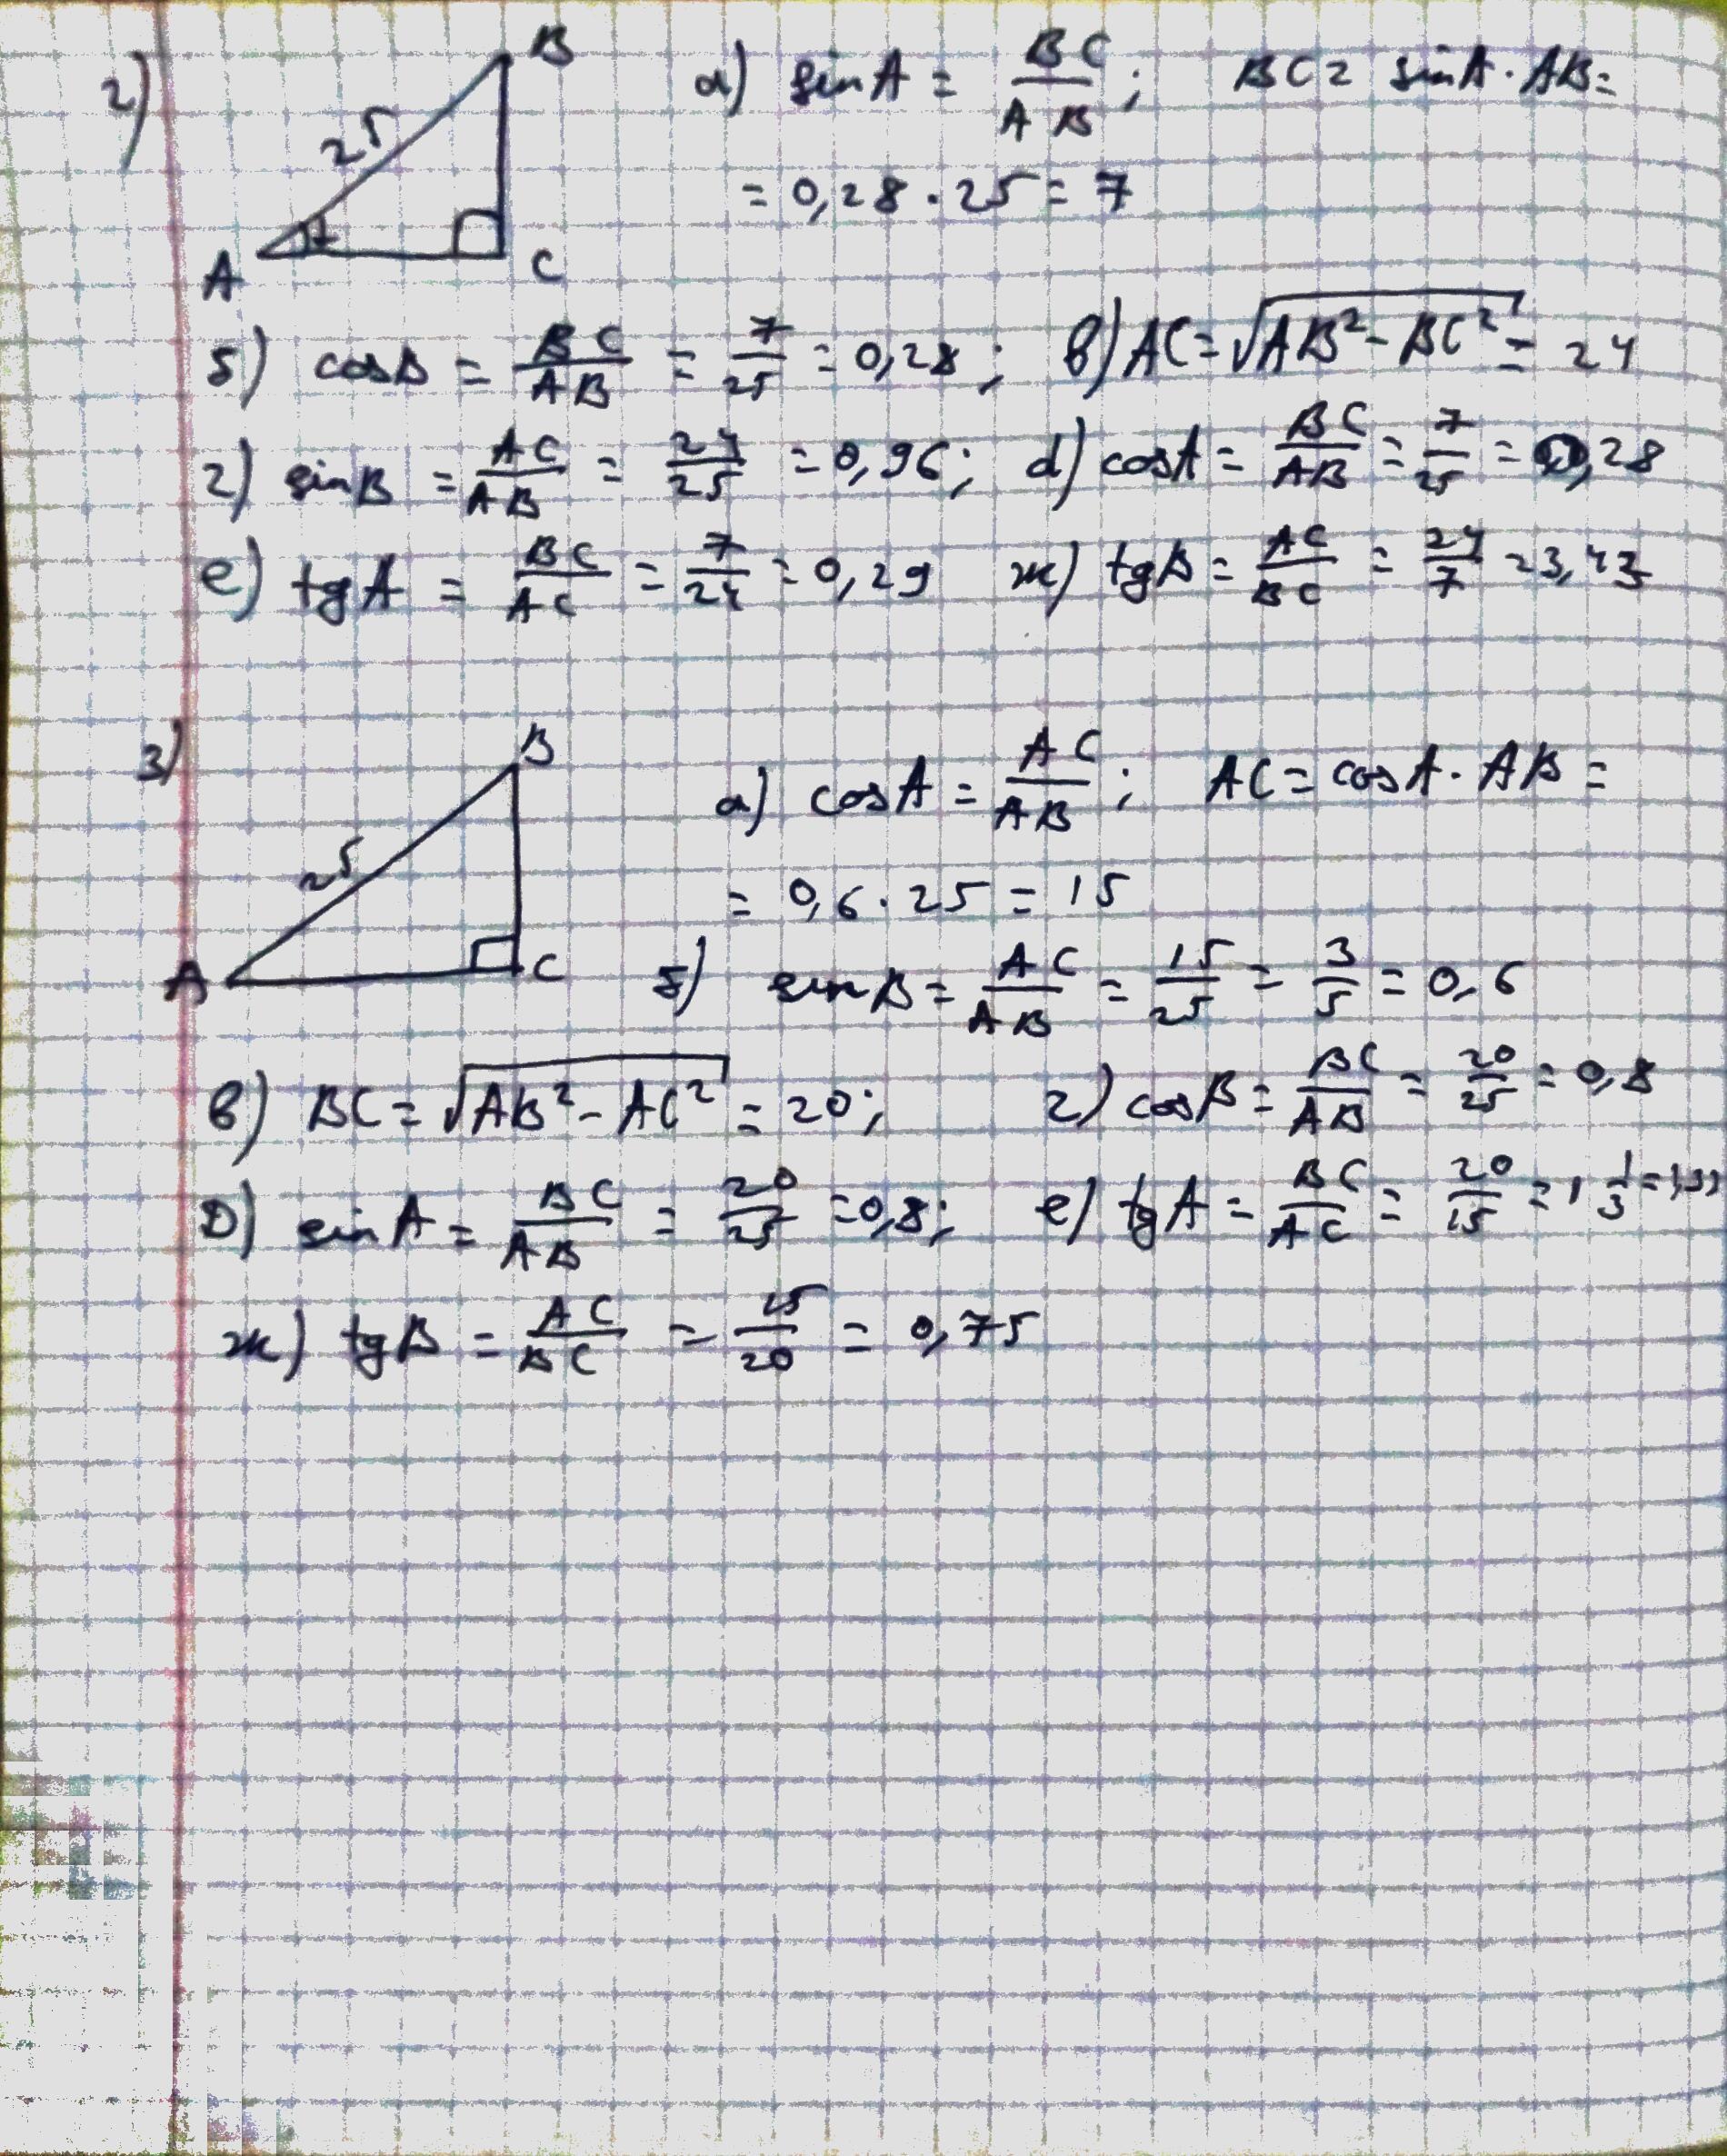 2) B 25 A C а) sin A = BC/AB; BC = sin A · AB =
= 0,28 · 25 = 7
б) cos B = BC/AB = 7/25 = 0,28; в) AC = √(AB² - BC²) = 24
г) sin B = AC/AB = 24/25 = 0,96; д) cos A = BC/AB = 7/25 = 0,28
е) tg A = BC/AC = 7/24 = 0,29 ж) tg B = AC/BC = 24/7 = 3,43
3) B 25 A C а) cos A = AC/AB; AC = cos A · AB =
= 0,6 · 25 = 15
б) sin B = AC/AB = 15/25 = 3/5 = 0,6
в) BC = √(AB² - AC²) = 20; г) cos B = BC/AB = 20/25 = 0,8
д) sin A = BC/AB = 20/25 = 0,8; е) tg A = BC/AC = 20/15 = 1 1/3 = 1,33
ж) tg B = AC/BC = 15/20 = 0,75